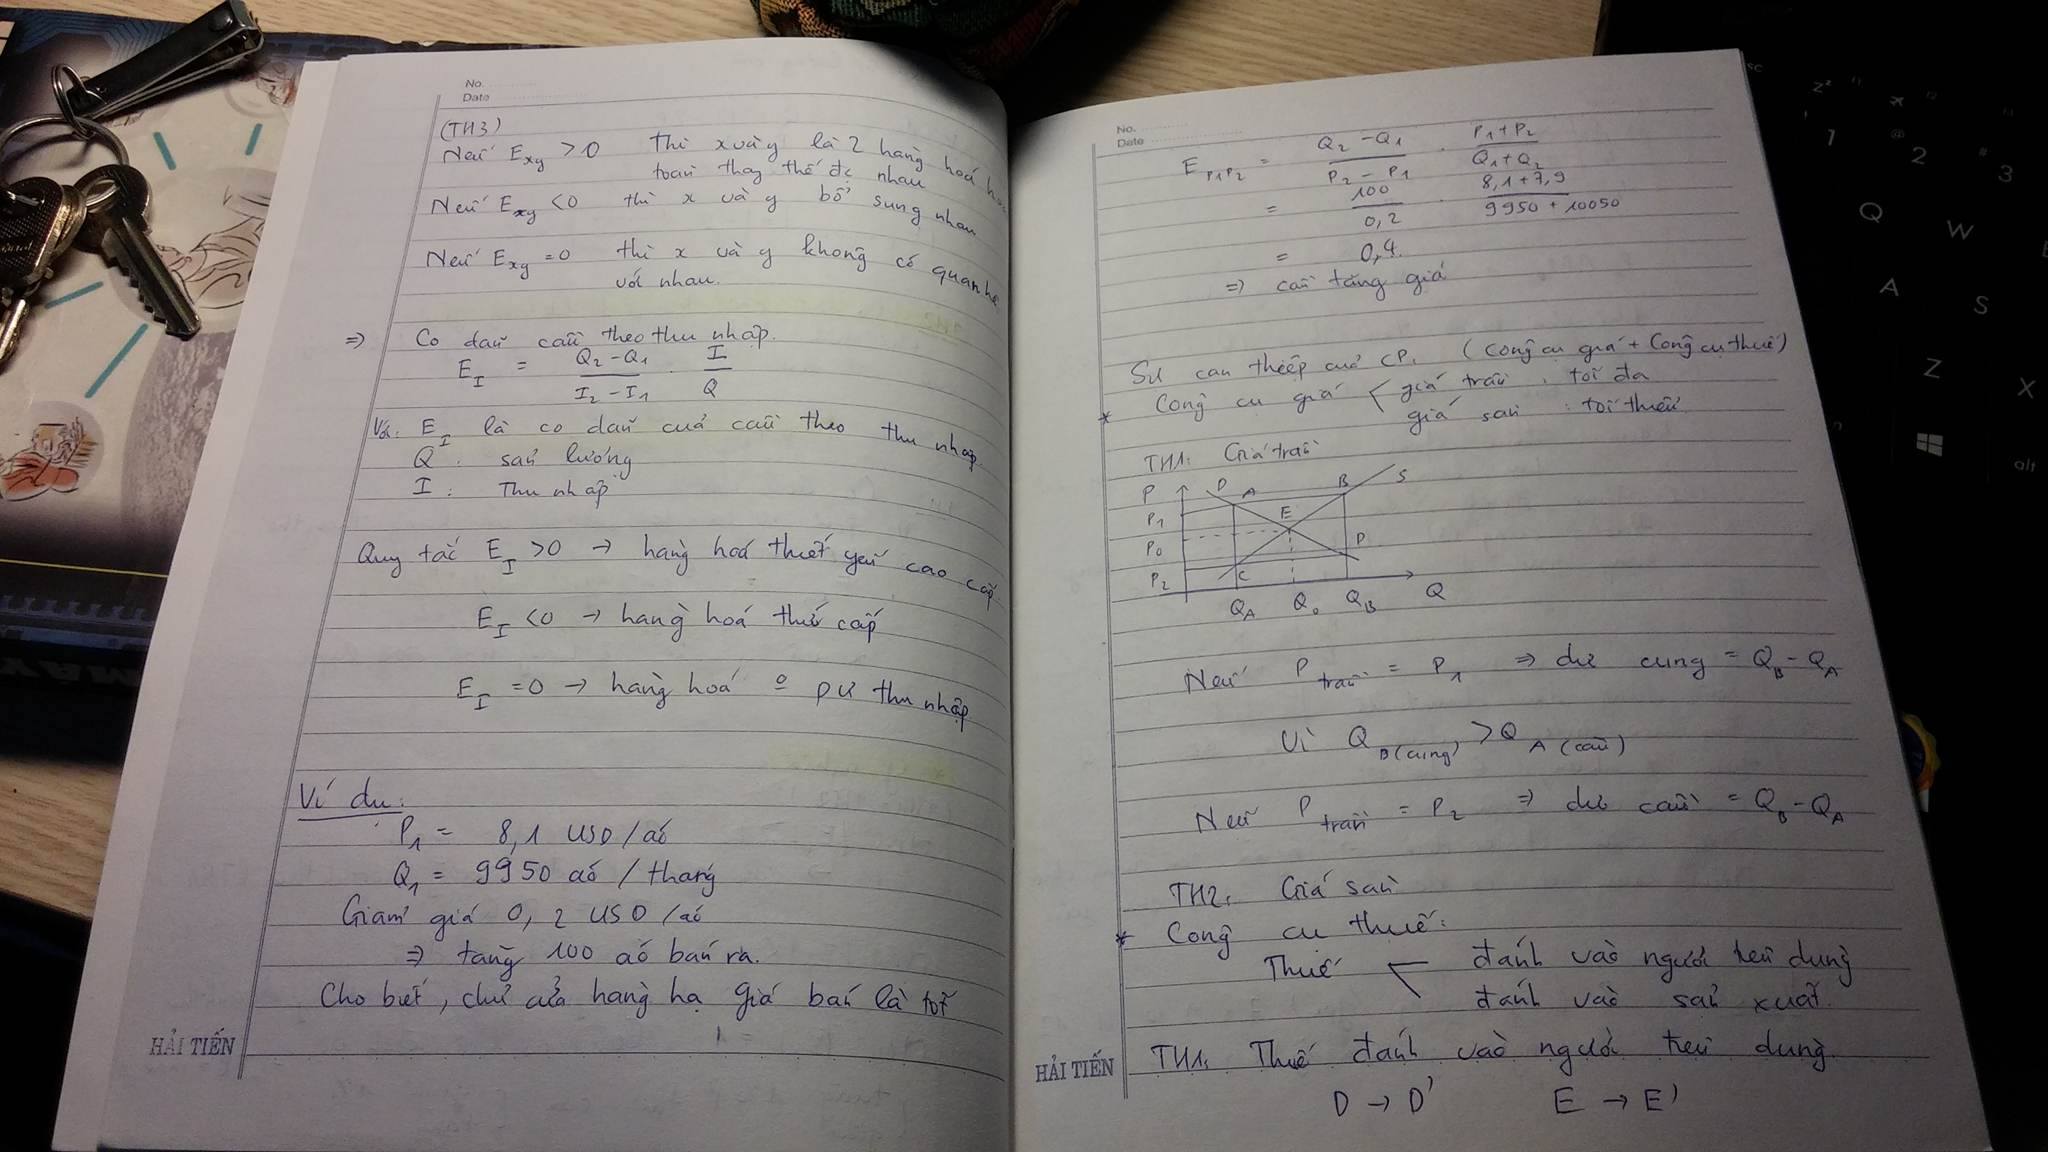 No.
Date
(TH3)
Nếu Exy > 0 thì x và y là 2 hàng hoá
toàn thay thế đc nhau
Nếu Exy < 0 thì x và y bổ sung nhau
Nếu Exy = 0 thì x và y không có quan hệ
với nhau.
=> Co dãn cầu theo thu nhập.
E_I = (Q2 - Q1)/(I2 - I1) . I/Q
Với: E_I là co dãn của cầu theo thu nhập.
Q : sản lượng
I : Thu nhập
Quy tắc E_I > 0 → hàng hoá thiết yếu cao cấp.
E_I < 0 → hàng hoá thứ cấp
E_I = 0 → hàng hoá o pư thu nhập
Ví dụ:
P1 = 8,1 USD/áo
Q1 = 9950 áo / tháng
Giảm giá 0,2 USD/áo
=> tăng 100 áo bán ra.
Cho biết, chủ cửa hàng hạ giá bán là tốt
HẢI TIẾN
No.
Date
E P1P2 = (Q2 - Q1)/(P2 - P1) . (P1 + P2)/(Q1 + Q2)
= 100/0,2 . (8,1 + 7,9)/(9950 + 10050)
= 0,4.
=> cần tăng giá
Sự can thiệp của CP. (Công cụ giá + Công cụ thuế)
* Công cụ giá < giá trần : tối đa
giá sàn : tối thiểu
TH1: Giá trần
P D A B S
P1 E
P0 D
P2 C
QA Q0 QB Q
Nếu P trần = P1 => dư cung = QB - QA
Vì Q B (cung) > Q A (cầu)
Nếu P trần = P2 => dư cầu = QB - QA
TH2: Giá sàn
* Công cụ thuế:
Thuế < đánh vào người tiêu dùng
đánh vào sản xuất.
TH1: Thuế đánh vào người tiêu dùng.
D → D' E → E'
HẢI TIẾN
Z
1
2
3
Q
W
A
S
Z
X
alt